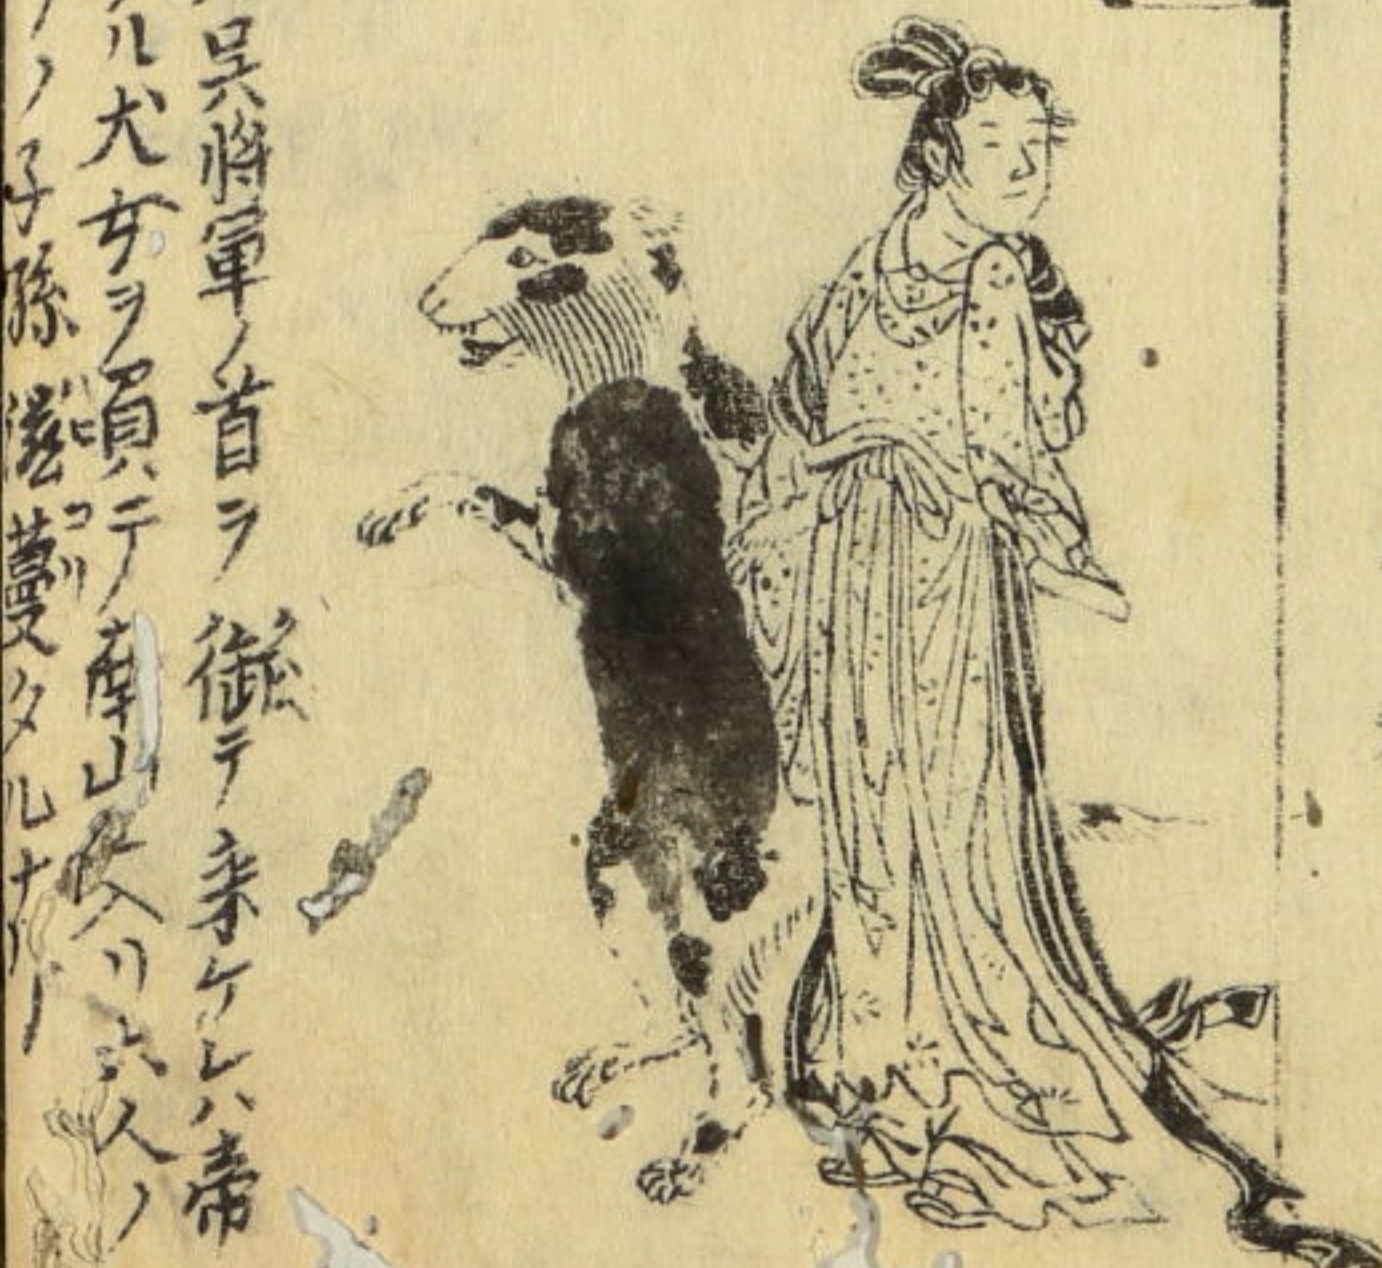 呉将軍ノ首ヲ銜テ来ケレハ帝
ル犬女ヲ負テ南山ニ入リ六人ノ
ノ子孫滋蔓タルナリ